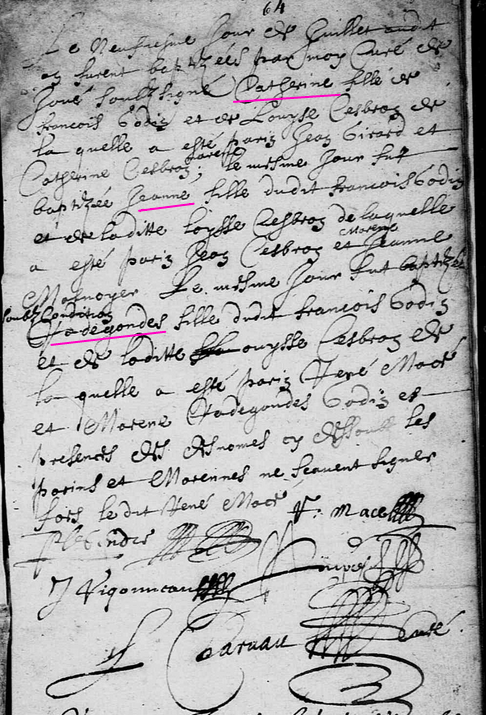 64
Le Neufiesme Jour de Juillet audit
an furent baptizées par moy Curé de
Joué soubsigné Catherine fille de
francois Godin et de Louyse Cesbron de
la quelle a esté parin Jean Girard et
Catherine Cesbron marenne, le mesme Jour fut
baptizée Jeanne fille dudit francois Godin
et de laditte loysse Cesbron de laquelle
a esté parin Jean Cesbron et Jeanne
marene
Le mesme Jour fut baptizée
soubs condition
Radegondes fille dudit francois Godin
et de laditte Louysse Cesbron de
la quelle a esté parin René Macé
et Marene Radegondes Godin et
presences des desnomes cy dessoubs les
parins et Marennes ne scavent signer
fors le dit René Macé
R. Mace
J Vigonneau
curé